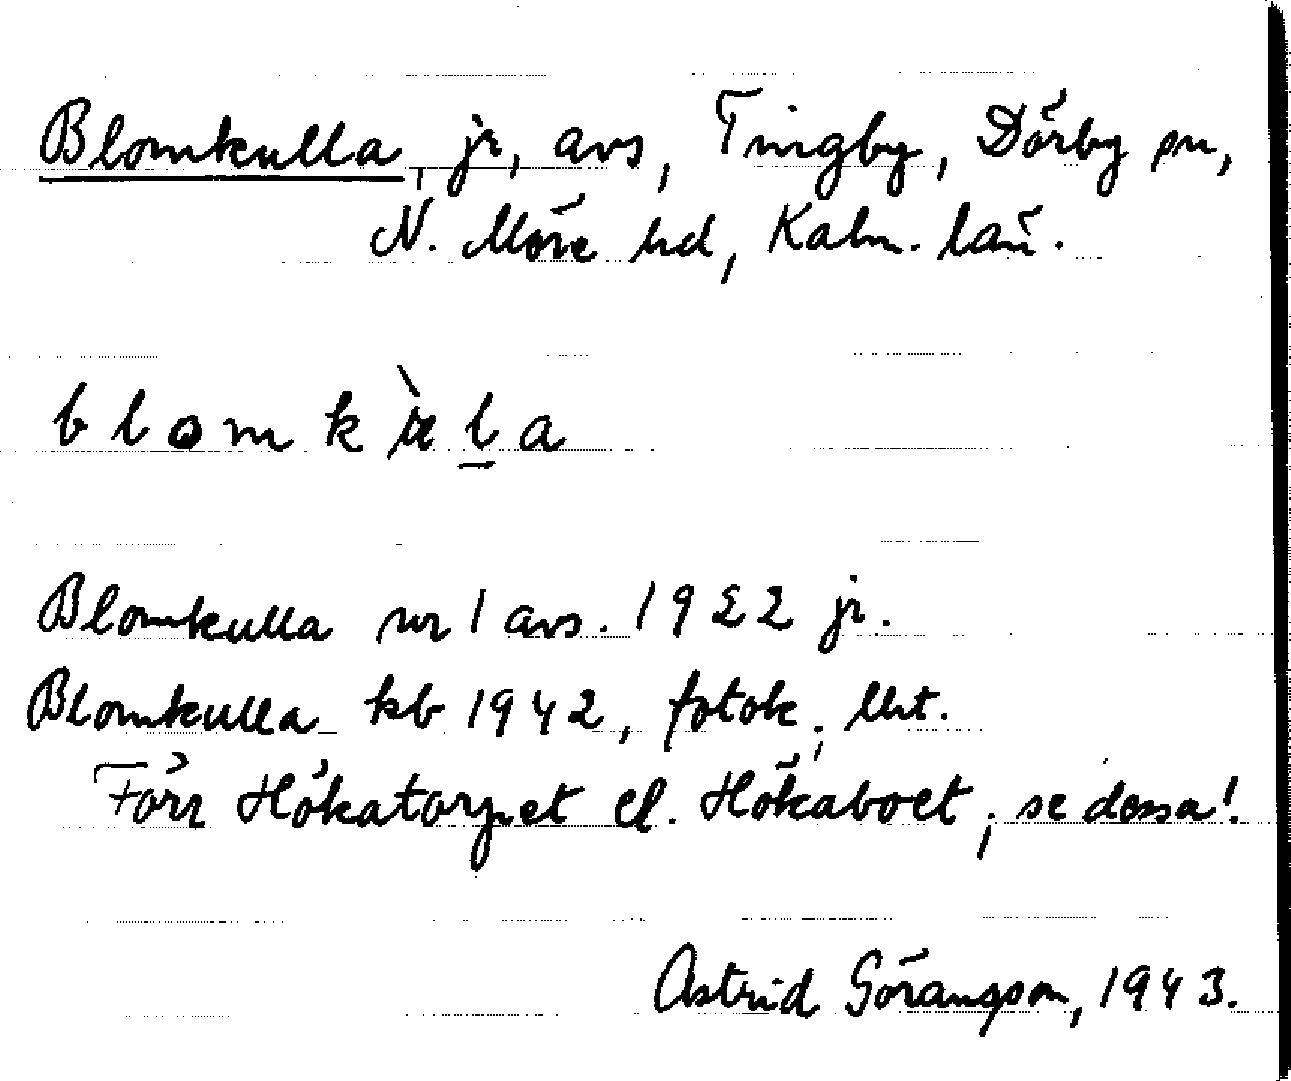 Blomkulla, jr, avs, Tingby, Dörby sn,
N. Möre hd, Kalm. län.
Blomkulla nr 1 avs. 1922 jr.
Blomkulla kb 1942, fotok; lht.
Förr Hökatorpet el. Hökaboet; se dessa!
Astrid Göransson, 1943.